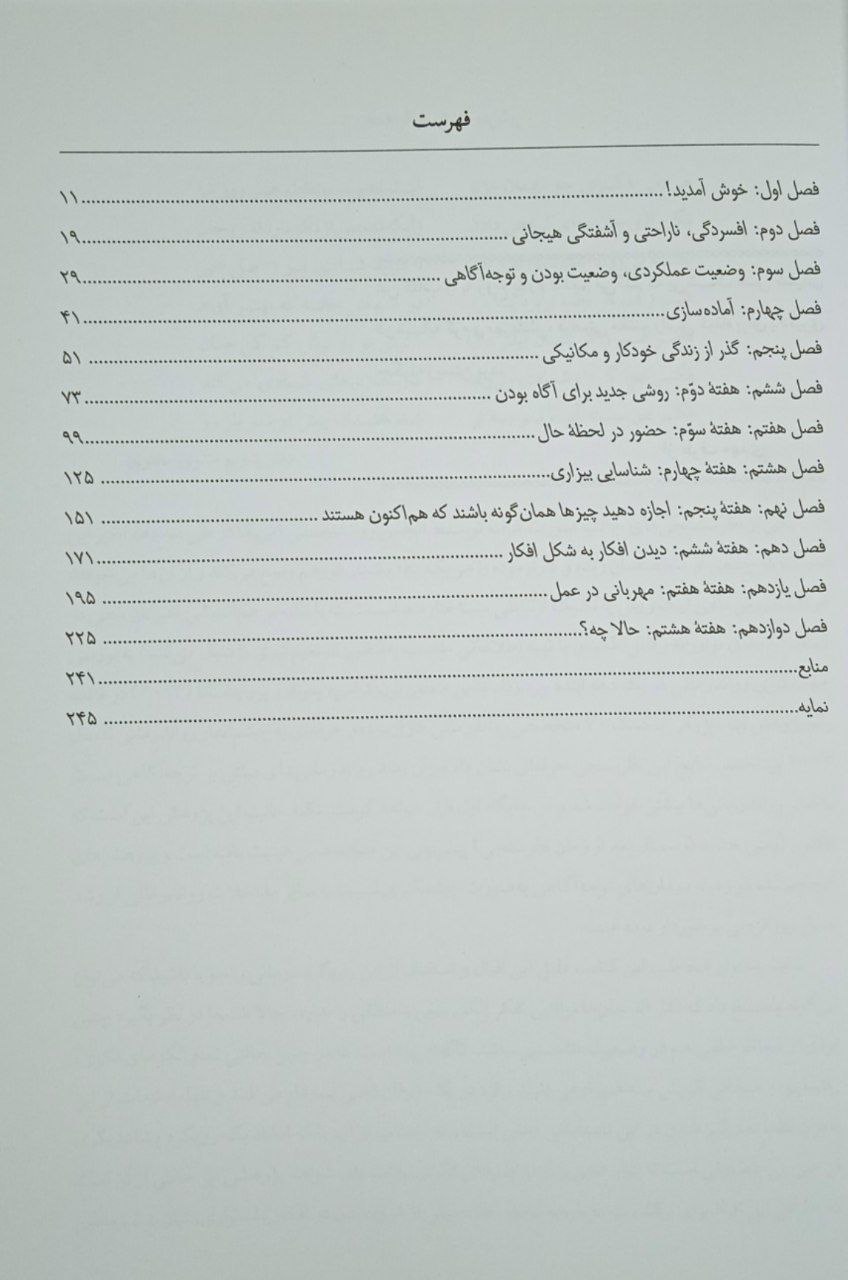 فهرست
فصل اول: خوش آمدید!........................................ ۱۱
فصل دوم: افسردگی، ناراحتی و آشفتگی هیجانی ........................................ ۱۹
فصل سوم: وضعیت عملکردی، وضعیت بودن و توجه‌آگاهی ........................................ ۲۹
فصل چهارم: آماده‌سازی........................................ ۴۱
فصل پنجم: گذر از زندگی خودکار و مکانیکی ........................................ ۵۱
فصل ششم: هفتهٔ دوّم: روشی جدید برای آگاه بودن ........................................ ۷۳
فصل هفتم: هفتهٔ سوّم: حضور در لحظهٔ حال........................................ ۹۹
فصل هشتم: هفتهٔ چهارم: شناسایی بیزاری........................................ ۱۲۵
فصل نهم: هفتهٔ پنجم: اجازه دهید چیزها همان‌گونه باشند که هم‌اکنون هستند ........................................ ۱۵۱
فصل دهم: هفتهٔ ششم: دیدن افکار به شکل افکار ........................................ ۱۷۱
فصل یازدهم: هفتهٔ هفتم: مهربانی در عمل........................................ ۱۹۵
فصل دوازدهم: هفتهٔ هشتم: حالا چه؟........................................ ۲۲۵
منابع........................................ ۲۴۱
نمایه........................................ ۲۴۵